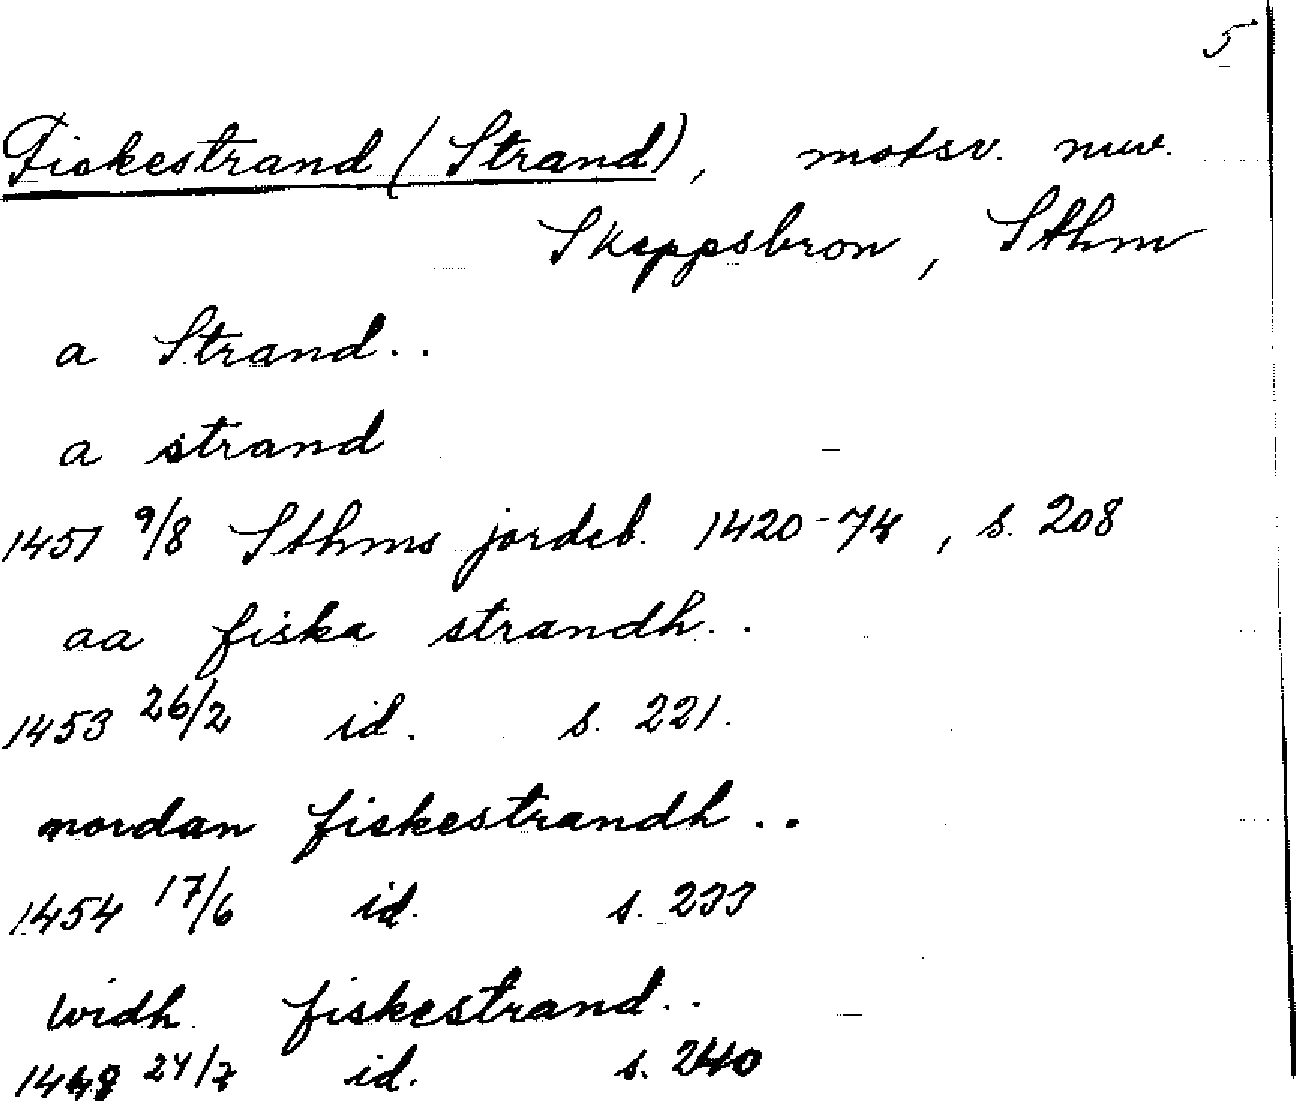 5
Fiskestrand (Strand), motsv. nuv.
Skeppsbron, Sthm
a Strand..
a strand
1451 9/8 Sthms jordeb. 1420-74, s. 208
aa fiska strandh..
1453 26/2 id. s. 221.
nordan fiskestrandh..
1454 17/6 id. s. 233
widh fiskestrand..
24/7 id. s. 240